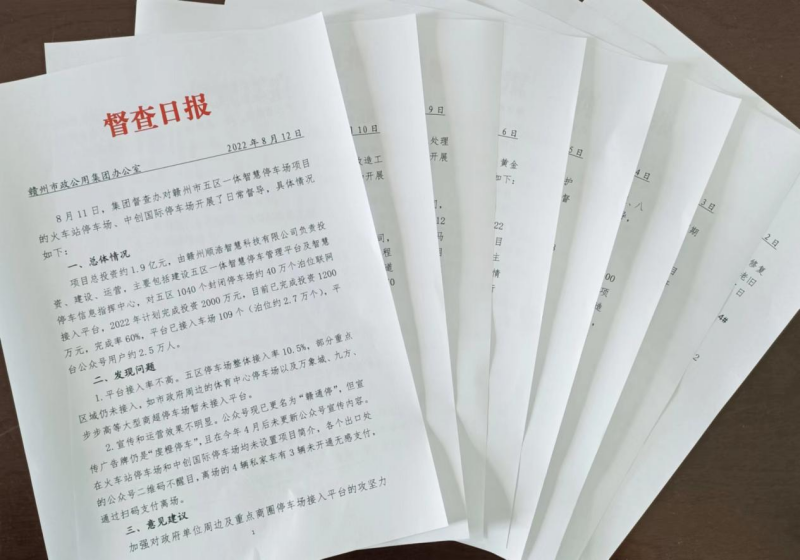 督查日报
赣州市政公用集团办公室
2022年8月12日
8月11日，集团督查办对赣州市五区一体智慧停车场项目
的火车站停车场、中创国际停车场开展了日常督导，具体情况
如下：
一、总体情况
项目总投资约1.9亿元，由赣州顺浩智慧科技有限公司负责投
资、建设、运营，主要包括建设五区一体智慧停车管理平台及智慧
停车信息指挥中心，对五区1040个封闭停车场约40万个泊位联网
接入平台，2022年计划完成投资2000万元，目前已完成投资1200
万元，完成率60%，平台已接入车场109个（泊位约2.7万个），平
台公众号用户约2.5万人。
二、发现问题
1.平台接入率不高。五区停车场整体接入率10.5%，部分重点
区域仍未接入，如市政府周边的体育中心停车场以及万象城、九方、
步步高等大型商超停车场暂未接入平台。
2.宣传和运营效果不明显。公众号现已更名为“赣通停”，但宣
传广告牌仍是“虔橙停车”，且在今年4月后未更新公众号宣传内容。
在火车站停车场和中创国际停车场均未设置项目简介，各个出口处
的公众号二维码不醒目，离场的4辆私家车有3辆未开通无感支付，
通过扫码支付离场。
三、意见建议
加强对政府单位周边及重点商圈停车场接入平台的攻坚力
1
10日
造工
开展
间，
程
道
9日
处理
开展
马
6日
黄金
如下：
22
目
主
情
5日
护
督
00
项
造
4日
、八
3日
期
2日
修复
老旧
日
4#
2